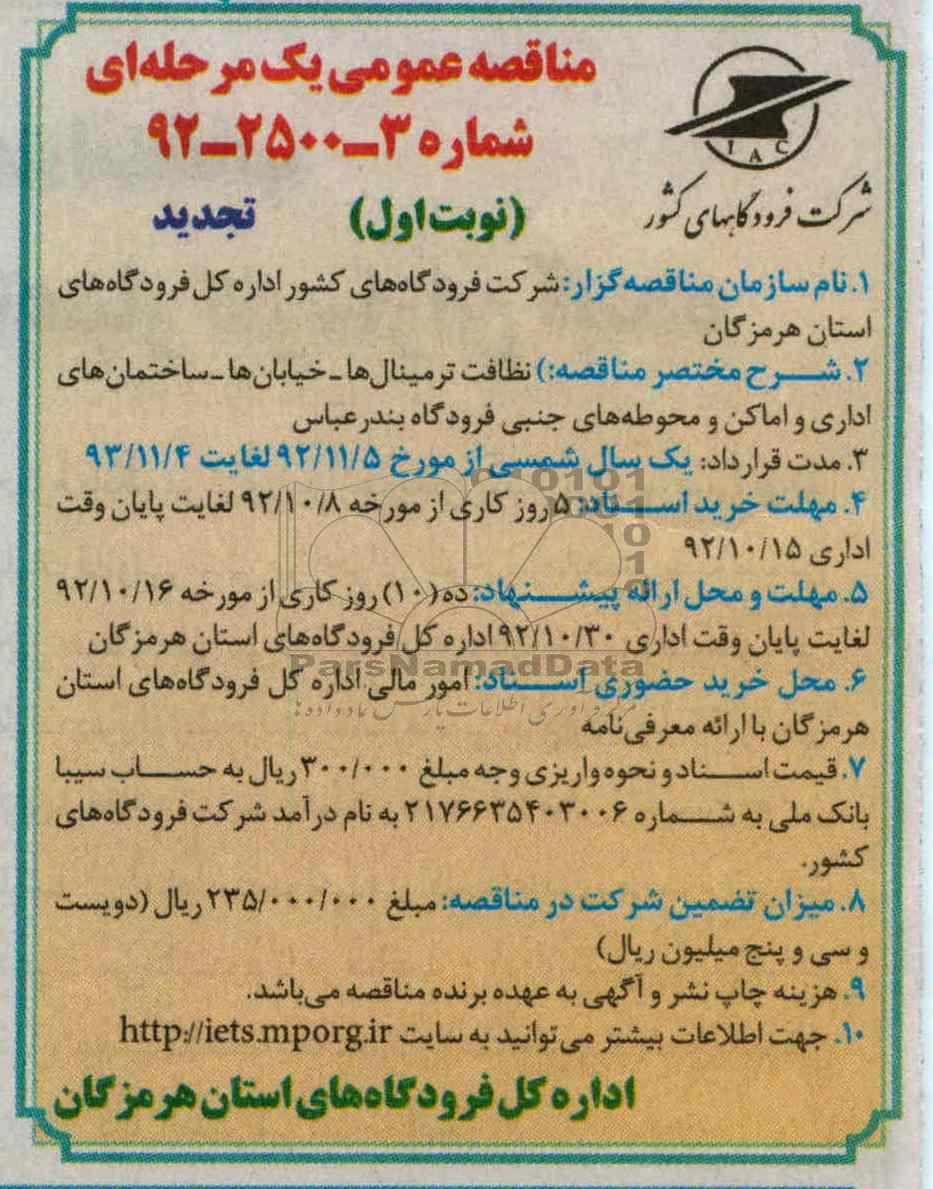 مناقصه عمومی یک مرحله‌ای
شماره ۳ـ۲۵۰۰ـ۹۲
(نوبت اول) تجدید
IAC
شرکت فرودگاههای کشور
۱. نام سازمان مناقصه‌گزار: شرکت فرودگاه‌های کشور اداره کل فرودگاه‌های
استان هرمزگان
۲. شـــرح مختصر مناقصه:) نظافت ترمینال‌ها ـ خیابان‌ها ـ ساختمان‌های
اداری و اماکن و محوطه‌های جنبی فرودگاه بندرعباس
۳. مدت قرارداد: یک سال شمسی از مورخ ۹۲/۱۱/۵ لغایت ۹۳/۱۱/۴
۴. مهلت خرید اســـناد: ۵ روز کاری از مورخه ۹۲/۱۰/۸ لغایت پایان وقت
اداری ۹۲/۱۰/۱۵
۵. مهلت و محل ارائه پیشـــنهاد: ده (۱۰) روز کاری از مورخه ۹۲/۱۰/۱۶
لغایت پایان وقت اداری ۹۲/۱۰/۳۰ اداره کل فرودگاه‌های استان هرمزگان
ParsNamadData
۶. محل خرید حضوری اســـناد: امور مالی اداره کل فرودگاه‌های استان
هرمزگان با ارائه معرفی‌نامه
۷. قیمت اســـناد و نحوه واریزی وجه مبلغ ۳۰۰/۰۰۰ ریال به حســـاب سیبا
بانک ملی به شـــماره ۲۱۷۶۶۳۵۴۰۳۰۰۶ به نام درآمد شرکت فرودگاه‌های
کشور.
۸. میزان تضمین شرکت در مناقصه: مبلغ ۲۳۵/۰۰۰/۰۰۰ ریال (دویست
و سی و پنج میلیون ریال)
۹. هزینه چاپ نشر و آگهی به عهده برنده مناقصه می‌باشد.
۱۰. جهت اطلاعات بیشتر می‌توانید به سایت http://iets.mporg.ir
اداره کل فرودگاه‌های استان هرمزگان